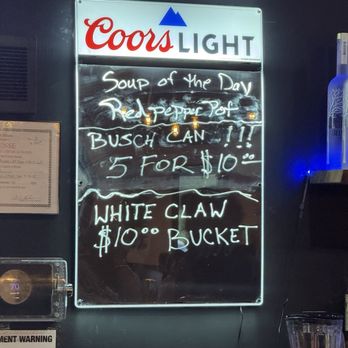 Coors LIGHT
Soup of the Day
Red pepper Pot
BUSCH CAN !!!
5 FOR $10.00
WHITE CLAW
$10.00 BUCKET
70
MENT WARNING